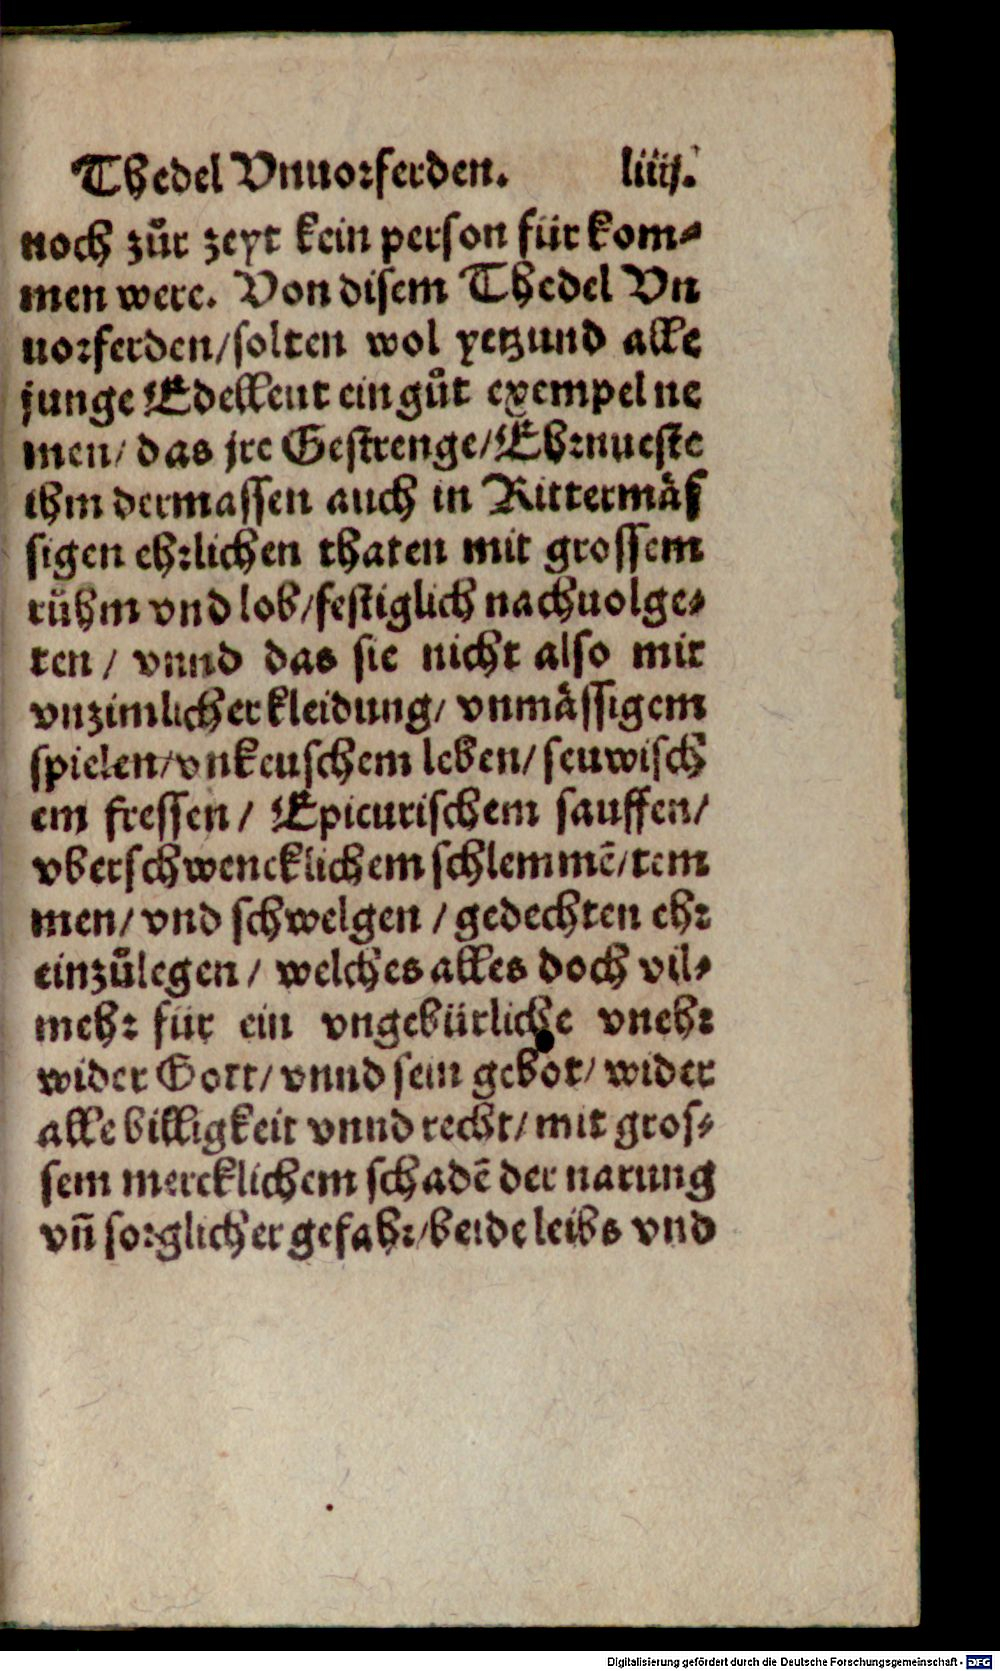 Thedel Vnuorferden. liiij.
noch zůr zeyt kein person für kom⸗
men were. Von disem Thedel Vn
uorferden/solten wol yetzund alle
junge Edelleut ein gůt exempel ne
men/ das jre Gestrenge/Ehrnueste
ihm dermassen auch in Rittermäs
sigen ehrlichen thaten mit grossem
růhm vnd lob/festiglich nachuolge⸗
ten / vnnd das sie nicht also mit
vnzimlicher kleidung/ vnmässigem
spielen/vnkeuschem leben/ seuwisch
em fressen / Epicurischem sauffen/
vberschwencklichem schlemmē/tem
men/ vnd schwelgen / gedechten ehr
einzůlegen / welches alles doch vil⸗
mehr für ein vngebürliche vnehr
wider Gott/ vnnd sein gebot/ wider
alle billigkeit vnnd recht/ mit gros⸗
sem mercklichem schadē der narung
vñ sorglicher gefahr/beide leibs vnd
Digitalisierung gefördert durch die Deutsche Forschungsgemeinschaft - DFG